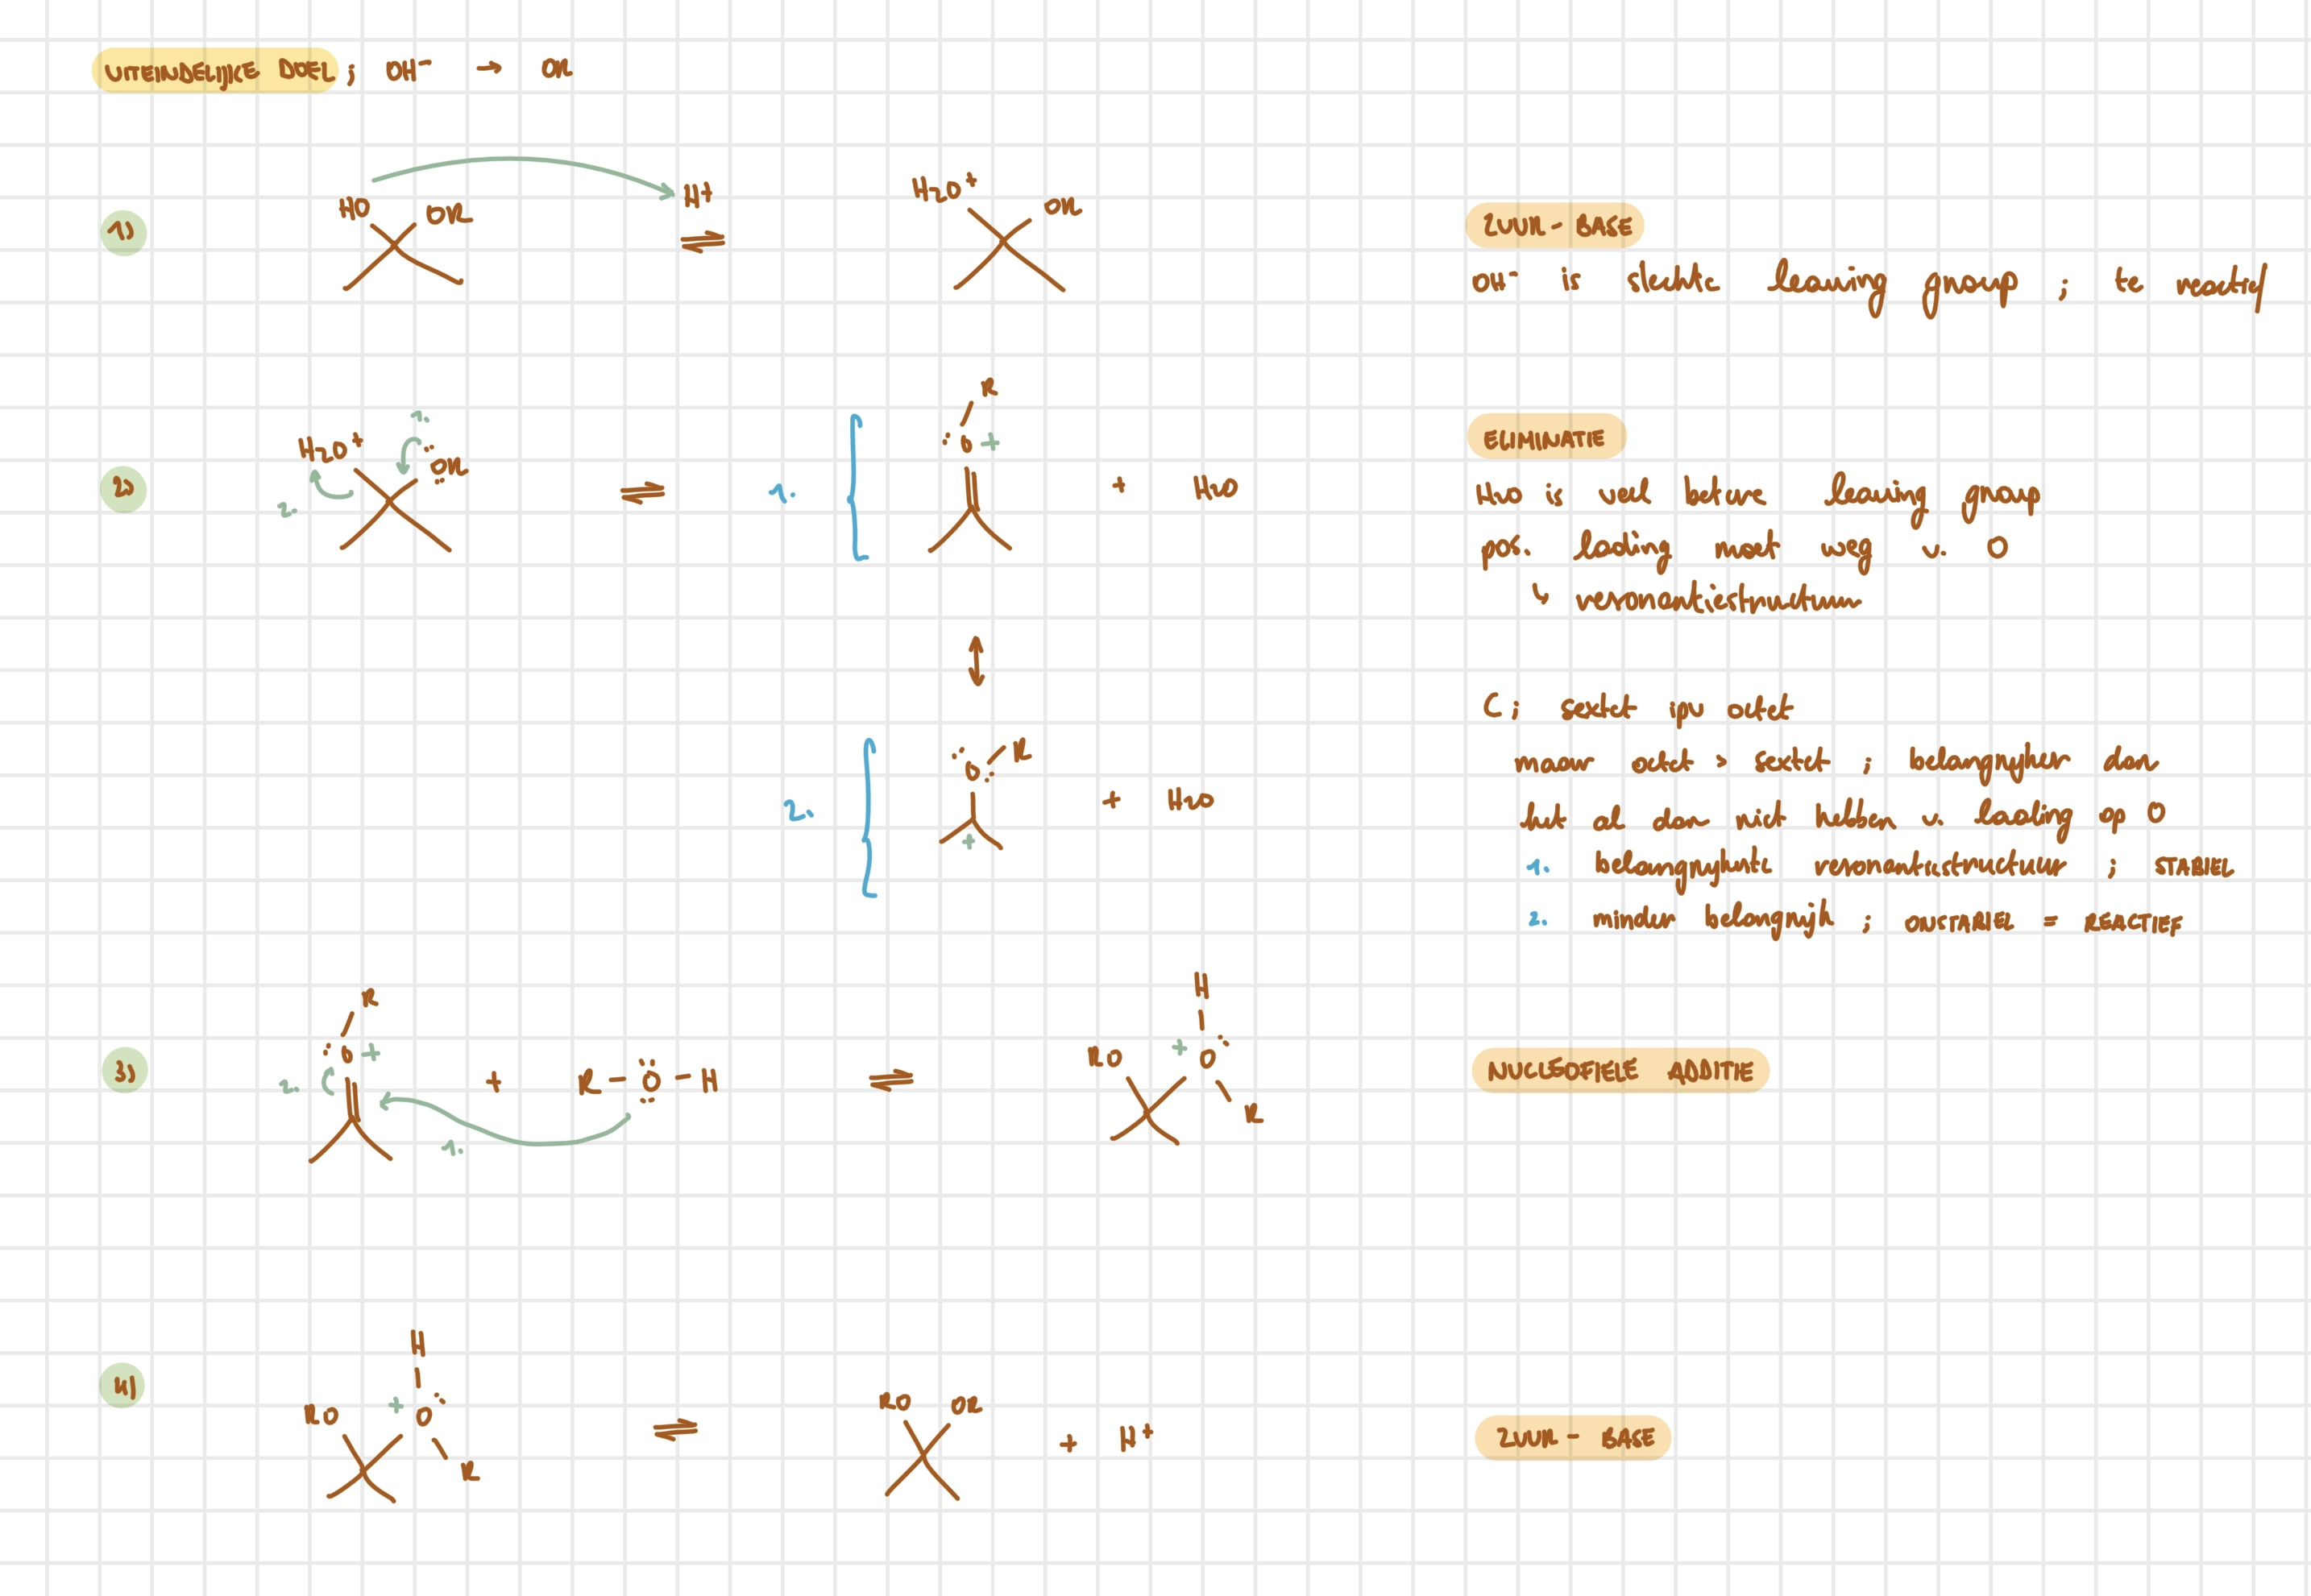 UITEINDELIJKE DOEL ; OH⁻ → OR
1)
HO OR H⁺ ⇌ H₂O⁺ OR
ZUUR - BASE
OH⁻ is slechte leaving group ; te reactief
2)
1. 2. H₂O⁺ OR ⇌ 1. R O + + H₂O
ELIMINATIE
H₂O is veel betere leaving group
pos. lading moet weg v. O
↳ resonantiestructuur
↕
C ; sextet ipv octet
maar octet > sextet ; belangrijker dan
het al dan niet hebben v. lading op O
1. belangrijkste resonantiestructuur ; STABIEL
2. minder belangrijk ; ONSTABIEL = REACTIEF
2. O R + + H₂O
3)
R O + 2. 1. + R - O - H ⇌ RO + H O R
NUCLEOFIELE ADDITIE
4)
RO + H O R ⇌ RO OR + H⁺
ZUUR - BASE